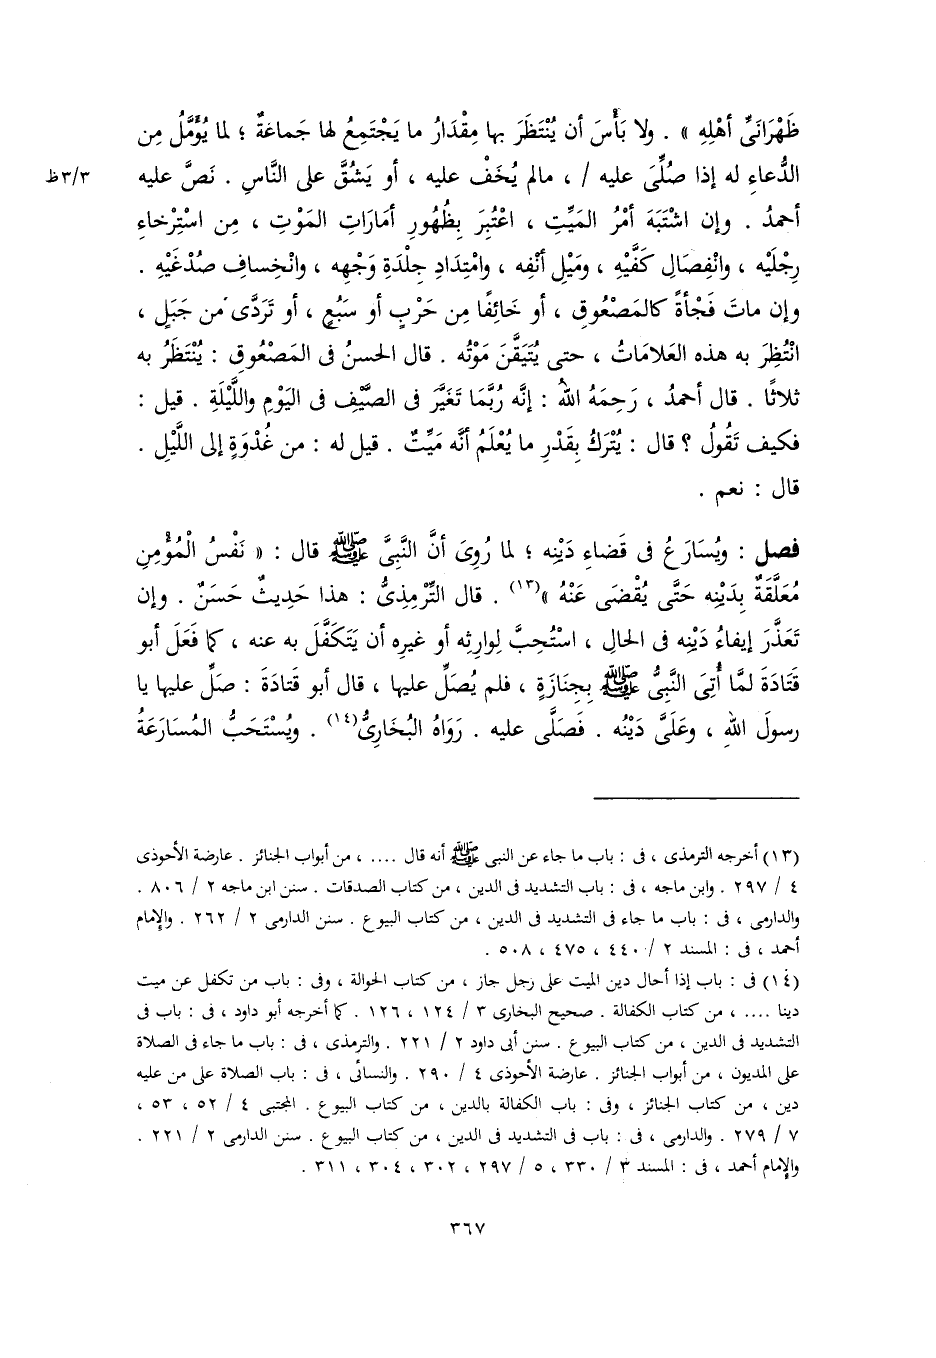 ظَهْرَانَىْ أهْلِهِ » . ولا بَأْسَ أن يُنْتَظَرَ بها مِقْدَارُ ما يَجْتَمِعُ لها جَماعةٌ ؛ لما يُؤَمَّلُ مِن
الدُّعاءِ له إذا صُلِّىَ عليه / ، مالم يُخَفْ عليه ، أو يَشُقَّ على النَّاسِ . نَصَّ عليه
٣/٣ظ
أحمدُ . وإن اشْتَبَهَ أمْرُ المَيِّتِ ، اعْتُبِرَ بِظُهُورِ أمَارَاتِ المَوْتِ ، مِن اسْتِرْخاءِ
رِجْلَيْه ، وانْفِصَالِ كَفَّيْهِ ، ومَيْلِ أنْفِه ، وامْتِدَادِ جِلْدَةِ وَجْهِه ، وانْخِسافِ صُدْغَيْهِ .
وإن ماتَ فَجْأةً كالمَصْعُوقِ ، أو خَائِفًا مِن حَرْبٍ أو سَبُعٍ ، أو تَرَدَّى من جَبَلٍ ،
انْتُظِرَ به هذه العَلامَاتُ ، حتى يُتَيَقَّنَ مَوْتُه . قال الحسنُ فى المَصْعُوقِ : يُنْتَظَرُ به
ثلاثًا . قال أحمدُ ، رَحِمَهُ اللهُ : إنَّه رُبَّمَا تَغَيَّرَ فى الصَّيْفِ فى اليَوْمِ واللَّيْلَةِ . قيل :
فكيف تَقُولُ ؟ قال : يُتْرَكُ بِقَدْرِ ما يُعْلَمُ أنَّه مَيِّتٌ . قيل له : من غُدْوَةٍ إلى اللَّيْلِ .
قال : نعم .
فصل : ويُسَارَعُ فى قَضاءِ دَيْنِه ؛ لما رُوِىَ أنَّ النَّبِىَّ ﷺ قال : « نَفْسُ الْمُؤْمِنِ
مُعَلَّقَةٌ بِدَيْنِه حَتَّى يُقْضَى عَنْهُ »(١٣) . قال التِّرْمِذِىُّ : هذا حَدِيثٌ حَسَنٌ . وإن
تَعَذَّرَ إيفاءُ دَيْنِه فى الحالِ ، اسْتُحِبَّ لِوارِثِه أو غيرِه أن يَتَكَفَّلَ به عنه ، كما فَعَلَ أبو
قَتَادَةَ لمَّا أُتِىَ النَّبِىُّ ﷺ بِجِنَازَةٍ ، فلم يُصَلِّ عليها ، قال أبو قَتادَةَ : صَلِّ عليها يا
رسولَ اللهِ ، وعَلَىَّ دَيْنُه . فَصَلَّى عليه . رَوَاهُ البُخَارِىُّ(١٤) . ويُسْتَحَبُّ المُسَارَعَةُ
(١٣) أخرجه الترمذى ، فى : باب ما جاء عن النبى ﷺ أنه قال .... ، من أبواب الجنائز . عارضة الأحوذى
٤ / ٢٩٧ . وابن ماجه ، فى : باب التشديد فى الدين ، من كتاب الصدقات . سنن ابن ماجه ٢ / ٨٠٦ .
والدارمى ، فى : باب ما جاء فى التشديد فى الدين ، من كتاب البيوع . سنن الدارمى ٢ / ٢٦٢ . والإمام
أحمد ، فى : المسند ٢ / ٤٤٠ ، ٤٧٥ ، ٥٠٨ .
(١٤) فى : باب إذا أحال دين الميت على رجل جاز ، من كتاب الحوالة ، وفى : باب من تكفل عن ميت
دينا .... ، من كتاب الكفالة . صحيح البخارى ٣ / ١٢٤ ، ١٢٦ . كما أخرجه أبو داود ، فى : باب فى
التشديد فى الدين ، من كتاب البيوع . سنن أبى داود ٢ / ٢٢١ . والترمذى ، فى : باب ما جاء فى الصلاة
على المديون ، من أبواب الجنائز . عارضة الأحوذى ٤ / ٢٩٠ . والنسائى ، فى : باب الصلاة على من عليه
دين ، من كتاب الجنائز ، وفى : باب الكفالة بالدين ، من كتاب البيوع . المجتبى ٤ / ٥٢ ، ٥٣ ،
٧ / ٢٧٩ . والدارمى ، فى : باب فى التشديد فى الدين ، من كتاب البيوع . سنن الدارمى ٢ / ٢٢١ .
والإمام أحمد ، فى : المسند ٣ / ٣٣٠ ، ٥ / ٢٩٧ ، ٣٠٢ ، ٣٠٤ ، ٣١١ .
٣٦٧